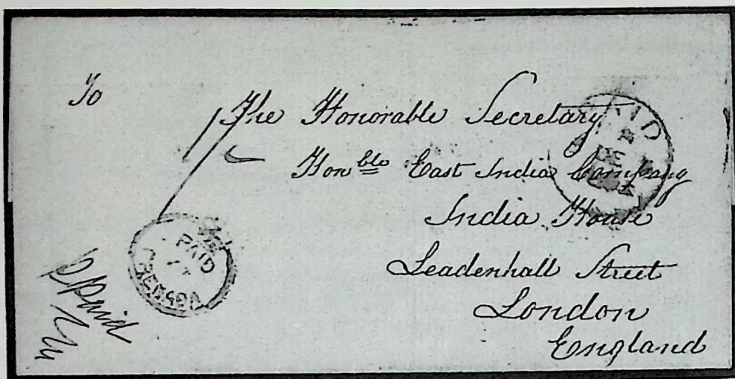 To
The Honorable Secretary
Honble East India Company
India House
Leadenhall Street
London
England
PAID
DE
PAID
Ppaid